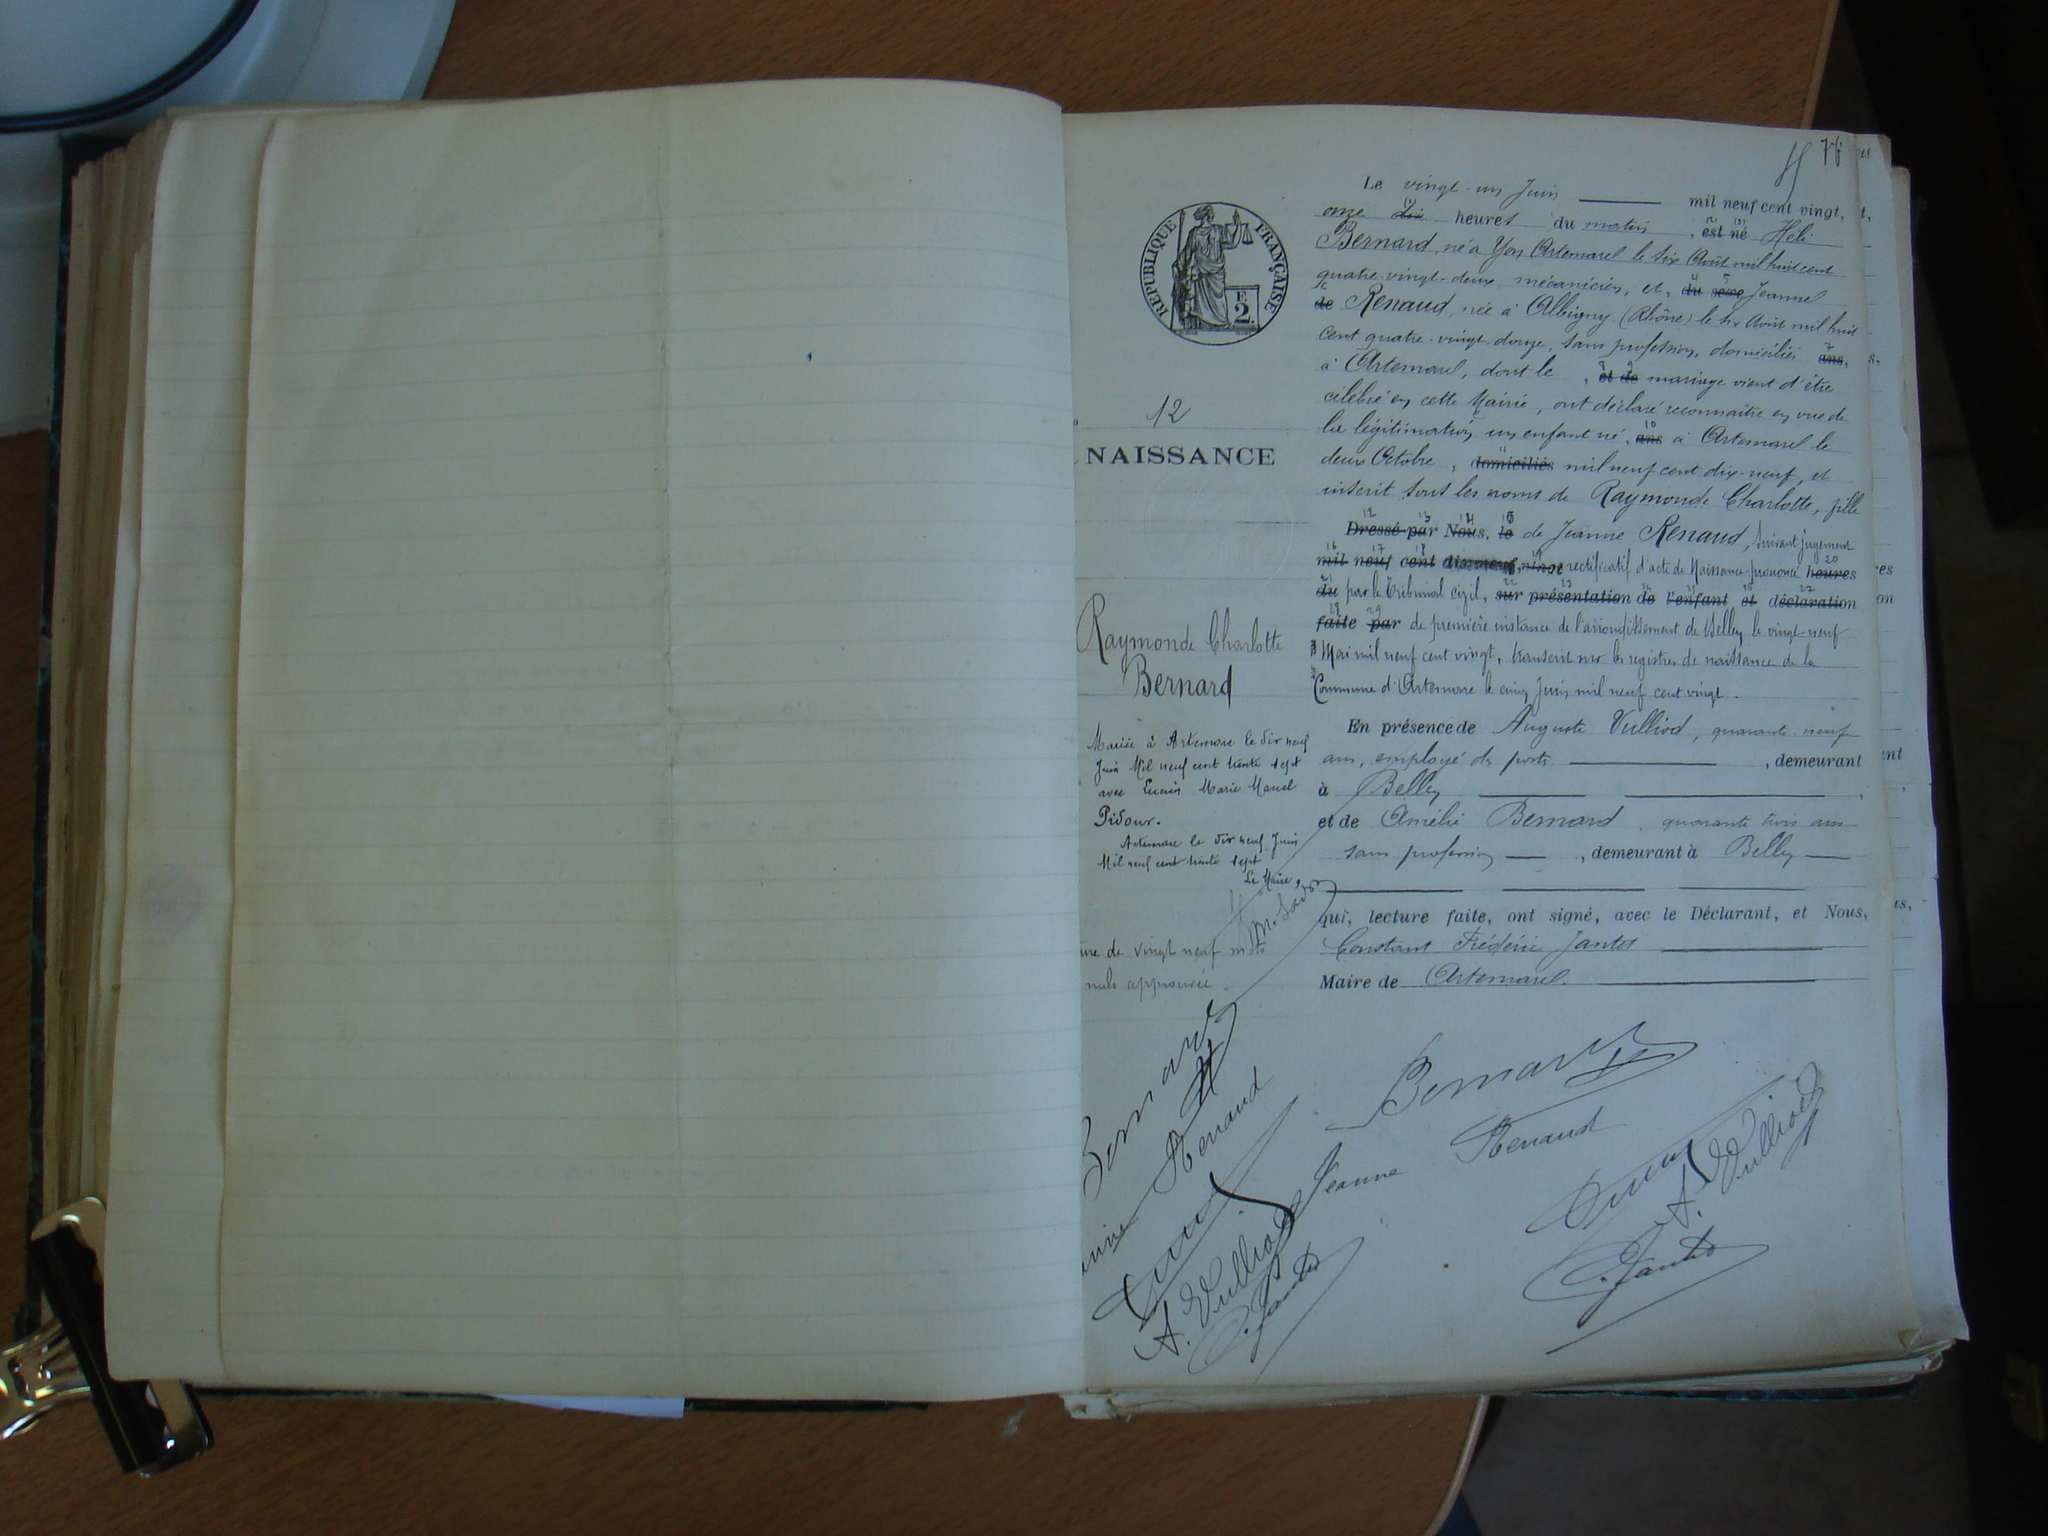 76
REPUBLIQUE FRANÇAISE
F.
2.
12
NAISSANCE
Raymonde Charlotte
Bernard
Mariée à Artemare le dix neuf
Juin Mil neuf cent trente sept
avec Lucien Marie Marcel
Pidoux.
Artemare le dix neuf Juin
Mil neuf cent trente sept
Le Maire,
de vingt neuf mots
nuls approuvée.
Le vingt-un Juin mil neuf cent vingt,
onze dix heures du matin, est né Héli
Bernard, né à Yon Artemare le six Août mil huit cent
quatre-vingt-deux, mécanicien, et, du sexe Jeanne
de Renaud, née à Albigny (Rhône) le six Août mil huit
cent quatre-vingt-douze, sans profession, domiciliés ans,
à Artemare, dont le , et de mariage vient d'être
célébré en cette Mairie, ont déclaré reconnaître en vue de
la légitimation, un enfant né, ans à Artemare le
deux Octobre, domiciliés mil neuf cent dix-neuf, et
inscrit sous les noms de Raymonde Charlotte, fille
Dressé par Nous, le de Jeanne Renaud, suivant jugement
mil neuf cent rectificatif d'acte de Naissance prononcé heures
du par le Tribunal civil, sur présentation de l'enfant et déclaration
faite par de première instance de l'arrondissement de Belley le vingt-neuf
Mai mil neuf cent vingt, transcrit sur les registres de naissance de la
Commune d'Artemare le cinq Juin mil neuf cent vingt.
En présence de Auguste Vulliod, quarante neuf
ans, employé des postes , demeurant
à Belley
et de Amélie Bernard, quarante trois ans
sans profession , demeurant à Belley
qui, lecture faite, ont signé, avec le Déclarant, et Nous,
Constant Frédéric Jantet
Maire de Artemare.
Bernard
Renaud
Jeanne Renaud
A. Vulliod
C. Jantet
Bernard
A. Vulliod
C. Jantet